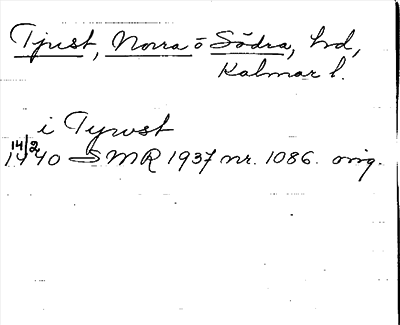 Tjust, Norra o Södra, hd,
Kalmar l.
i Tywst
14/2
1440 SMR 1937 nr. 1086. orig.